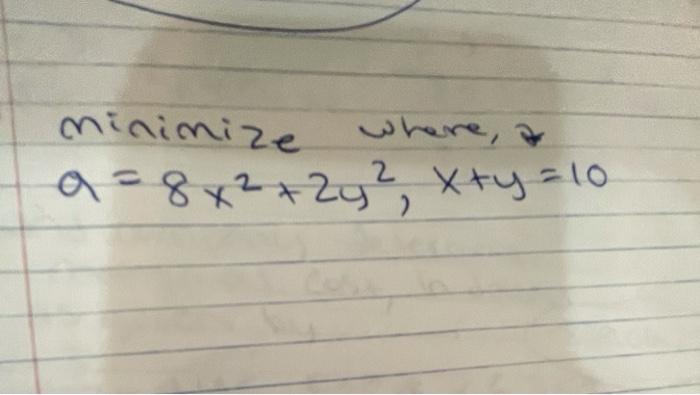 minimize where,
a = 8x² + 2y², x+y = 10